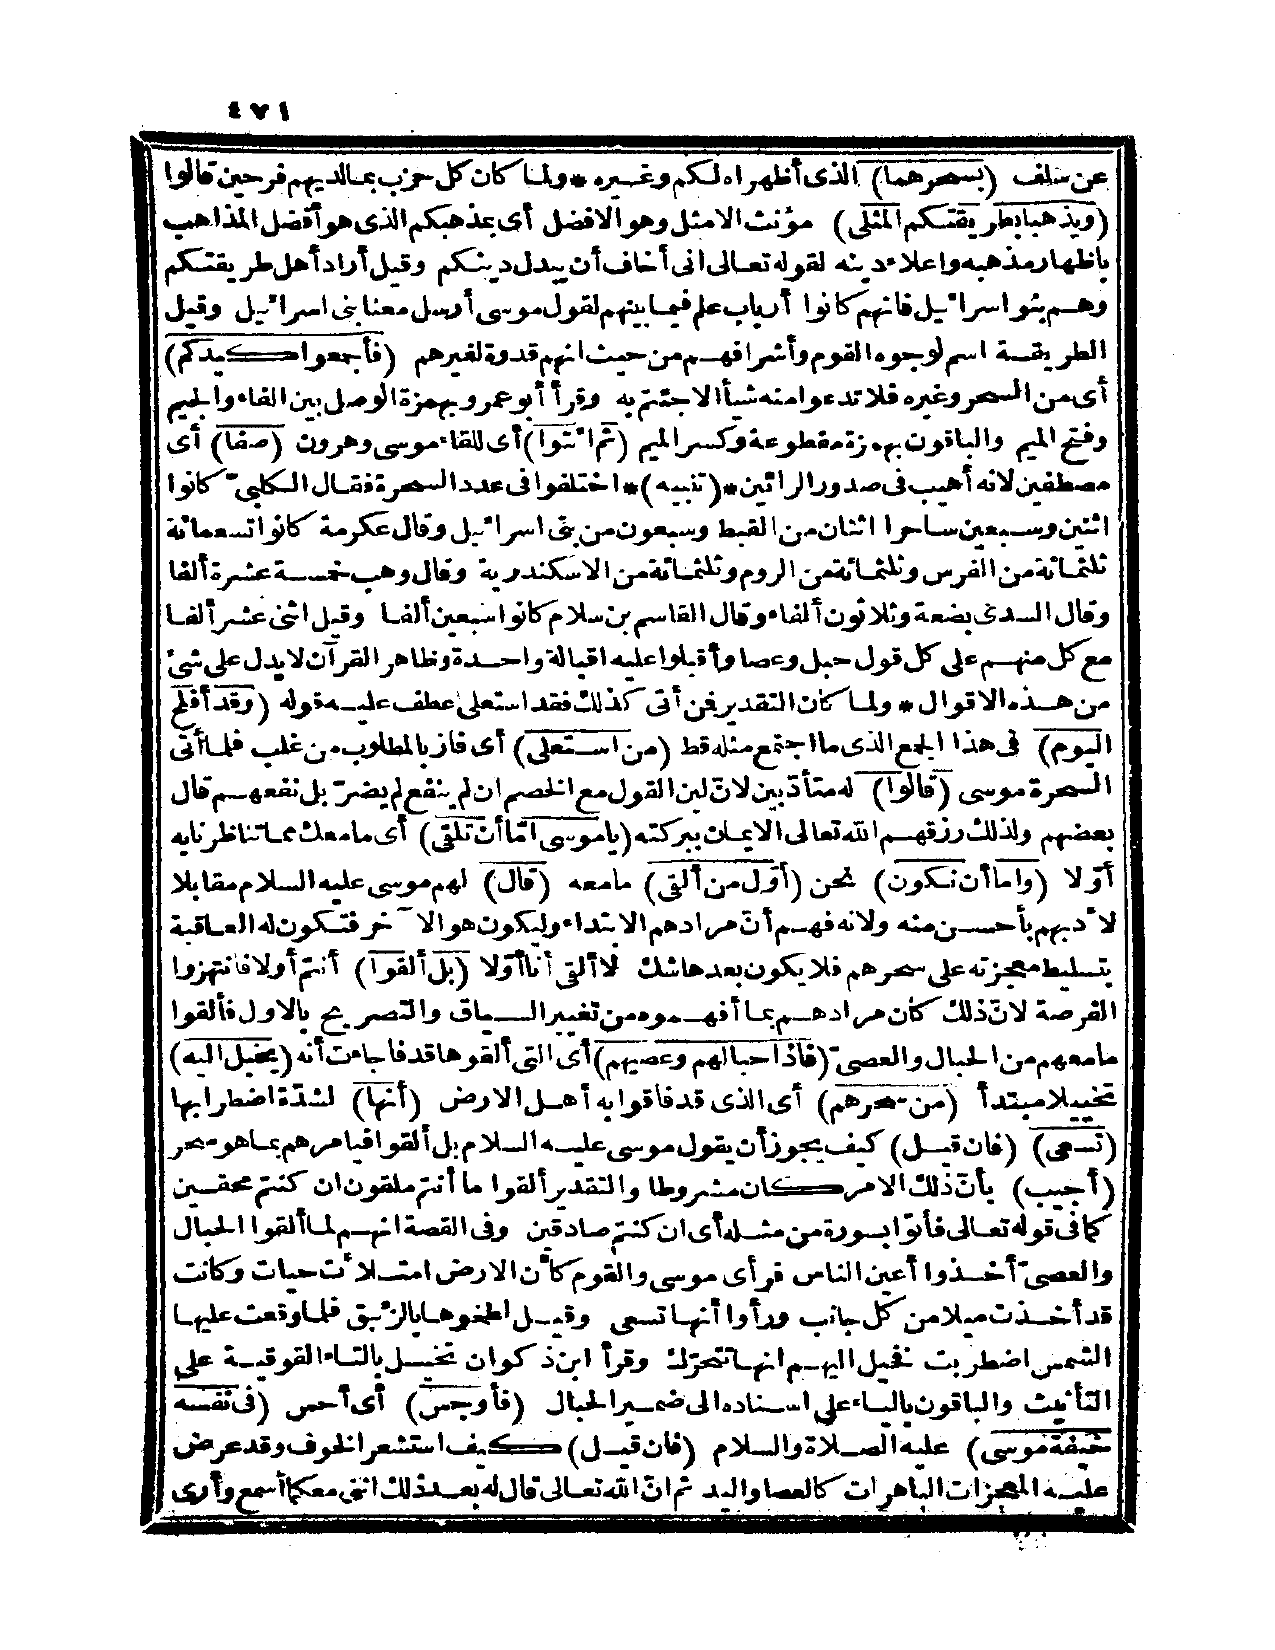 ٤٧١
عن سلف (بسحرهما) الذى أظهراه لكم وغيره * ولما كان كل حزب بما لديهم فرحين قالوا
(ويذهبا بطريقتكم المثلى) مؤنث الامثل وهو الافضل أى بمذهبكم الذى هو أفضل المذاهب
باظهار مذهبه واعلاء دينه لقوله تعالى انى أخاف أن يبدل دينكم وقيل أراد أهل طريقتكم
وهم بنو اسرائيل فانهم كانوا أرباب علم فيما بينهم لقول موسى أرسل معنا بنى اسرائيل وقيل
الطريقة اسم لوجوه القوم وأشرافهم من حيث انهم قدوة لغيرهم (فأجمعوا كيدكم)
أى من السحر وغيره فلا تدعوا منه شيأ الا جئتم به وقرأ أبو عمرو بهمزة الوصل بين الفاء والجيم
وفتح الميم والباقون بهمزة مقطوعة وكسر الميم (ثم ائتوا) أى للقاء موسى وهرون (صفا) أى
مصطفين لانه أهيب فى صدور الرائين * (تنبيه) * اختلفوا فى عدد السحرة فقال الكلبىّ كانوا
اثنين وسبعين ساحرا اثنان من القبط وسبعون من بنى اسرائيل وقال عكرمة كانوا تسعمائة
ثلثمائة من الفرس وثلثمائة من الروم وثلثمائة من الاسكندرية وقال وهب خمسة عشرة ألفا
وقال السدى بضعة وثلاثون ألفاء وقال القاسم بن سلام كانوا سبعين ألفا وقيل اثنى عشر ألفا
مع كل منهم على كل قول حبل وعصا وأقبلوا عليه اقبالة واحدة وظاهر القرآن لا يدل على شئ
من هذه الاقوال * ولما كان التقدير فمن أتى كذلك فقد استعلى عطف عليه قوله (وقد أفلح
اليوم) فى هذا الجمع الذى ما اجتمع مثله قط (من استعلى) أى فاز بالمطلوب من غلب فلما أتى
السحرة موسى (قالوا) له متأدّبين لانّ لين القول مع الخصم ان لم ينفع لم يضرّ بل نفعهم قال
بعضهم ولذلك رزقهم الله تعالى الايمان ببركته (يا موسى امّا أن تلقى) أى ما معك مما تناظرنا به
أوّلا (واما أن نكون) نحن (أوّل من ألقى) ما معه (قال) لهم موسى عليه السلام مقابلا
لادبهم بأحسن منه ولانه فهم أنّ مرادهم الابتداء وليكون هو الآخر فتكون له العاقبة
بتسليط معجزته على سحرهم فلا يكون بعدها شك لا ألقى أنا أوّلا (بل ألقوا) أنتم أولا فانتهزوا
الفرصة لانّ ذلك كان مرادهم بما أفهموه من تغيير السياق والتصريح بالاول فألقوا
ما معهم من الحبال والعصىّ (فاذا حبالهم وعصيهم) أى التى ألقوها قد فاجاءت أنه (يخيل اليه)
تخييلا مبتدأ (من سحرهم) أى الذى قد فاقوا به أهل الارض (أنها) لشدّة اضطرابها
(تسعى) (فان قيل) كيف يجوز أن يقول موسى عليه السلام بل ألقوا فيأمرهم بما هو سحر
(أجيب) بأنّ ذلك الامر كان مشروطا والتقدير ألقوا ما أنتم ملقون ان كنتم محقين
كما فى قوله تعالى فأتوا بسورة من مثله أى ان كنتم صادقين وفى القصة انهم لما ألقوا الحبال
والعصىّ أخذوا أعين الناس فرأى موسى والقوم كأنّ الارض امتلأت حيات وكانت
قد أخذت ميلا من كل جانب ورأوا أنها تسعى وقيل لطخوها بالزئبق فلما وقعت عليها
الشمس اضطربت فخيل اليهم انها تتحرّك وقرأ ابن ذكوان تخيل بالتاء الفوقية على
التأنيث والباقون بالياء على اسناده الى ضمير الحبال (فأوجس) أى أحس (فى نفسه
خيفة موسى) عليه الصلاة والسلام (فان قيل) كيف استشعر الخوف وقد عرض
عليه المعجزات الباهرات كالعصا واليد ثم انّ الله تعالى قال له بعد ذلك اننى معكما أسمع وأرى